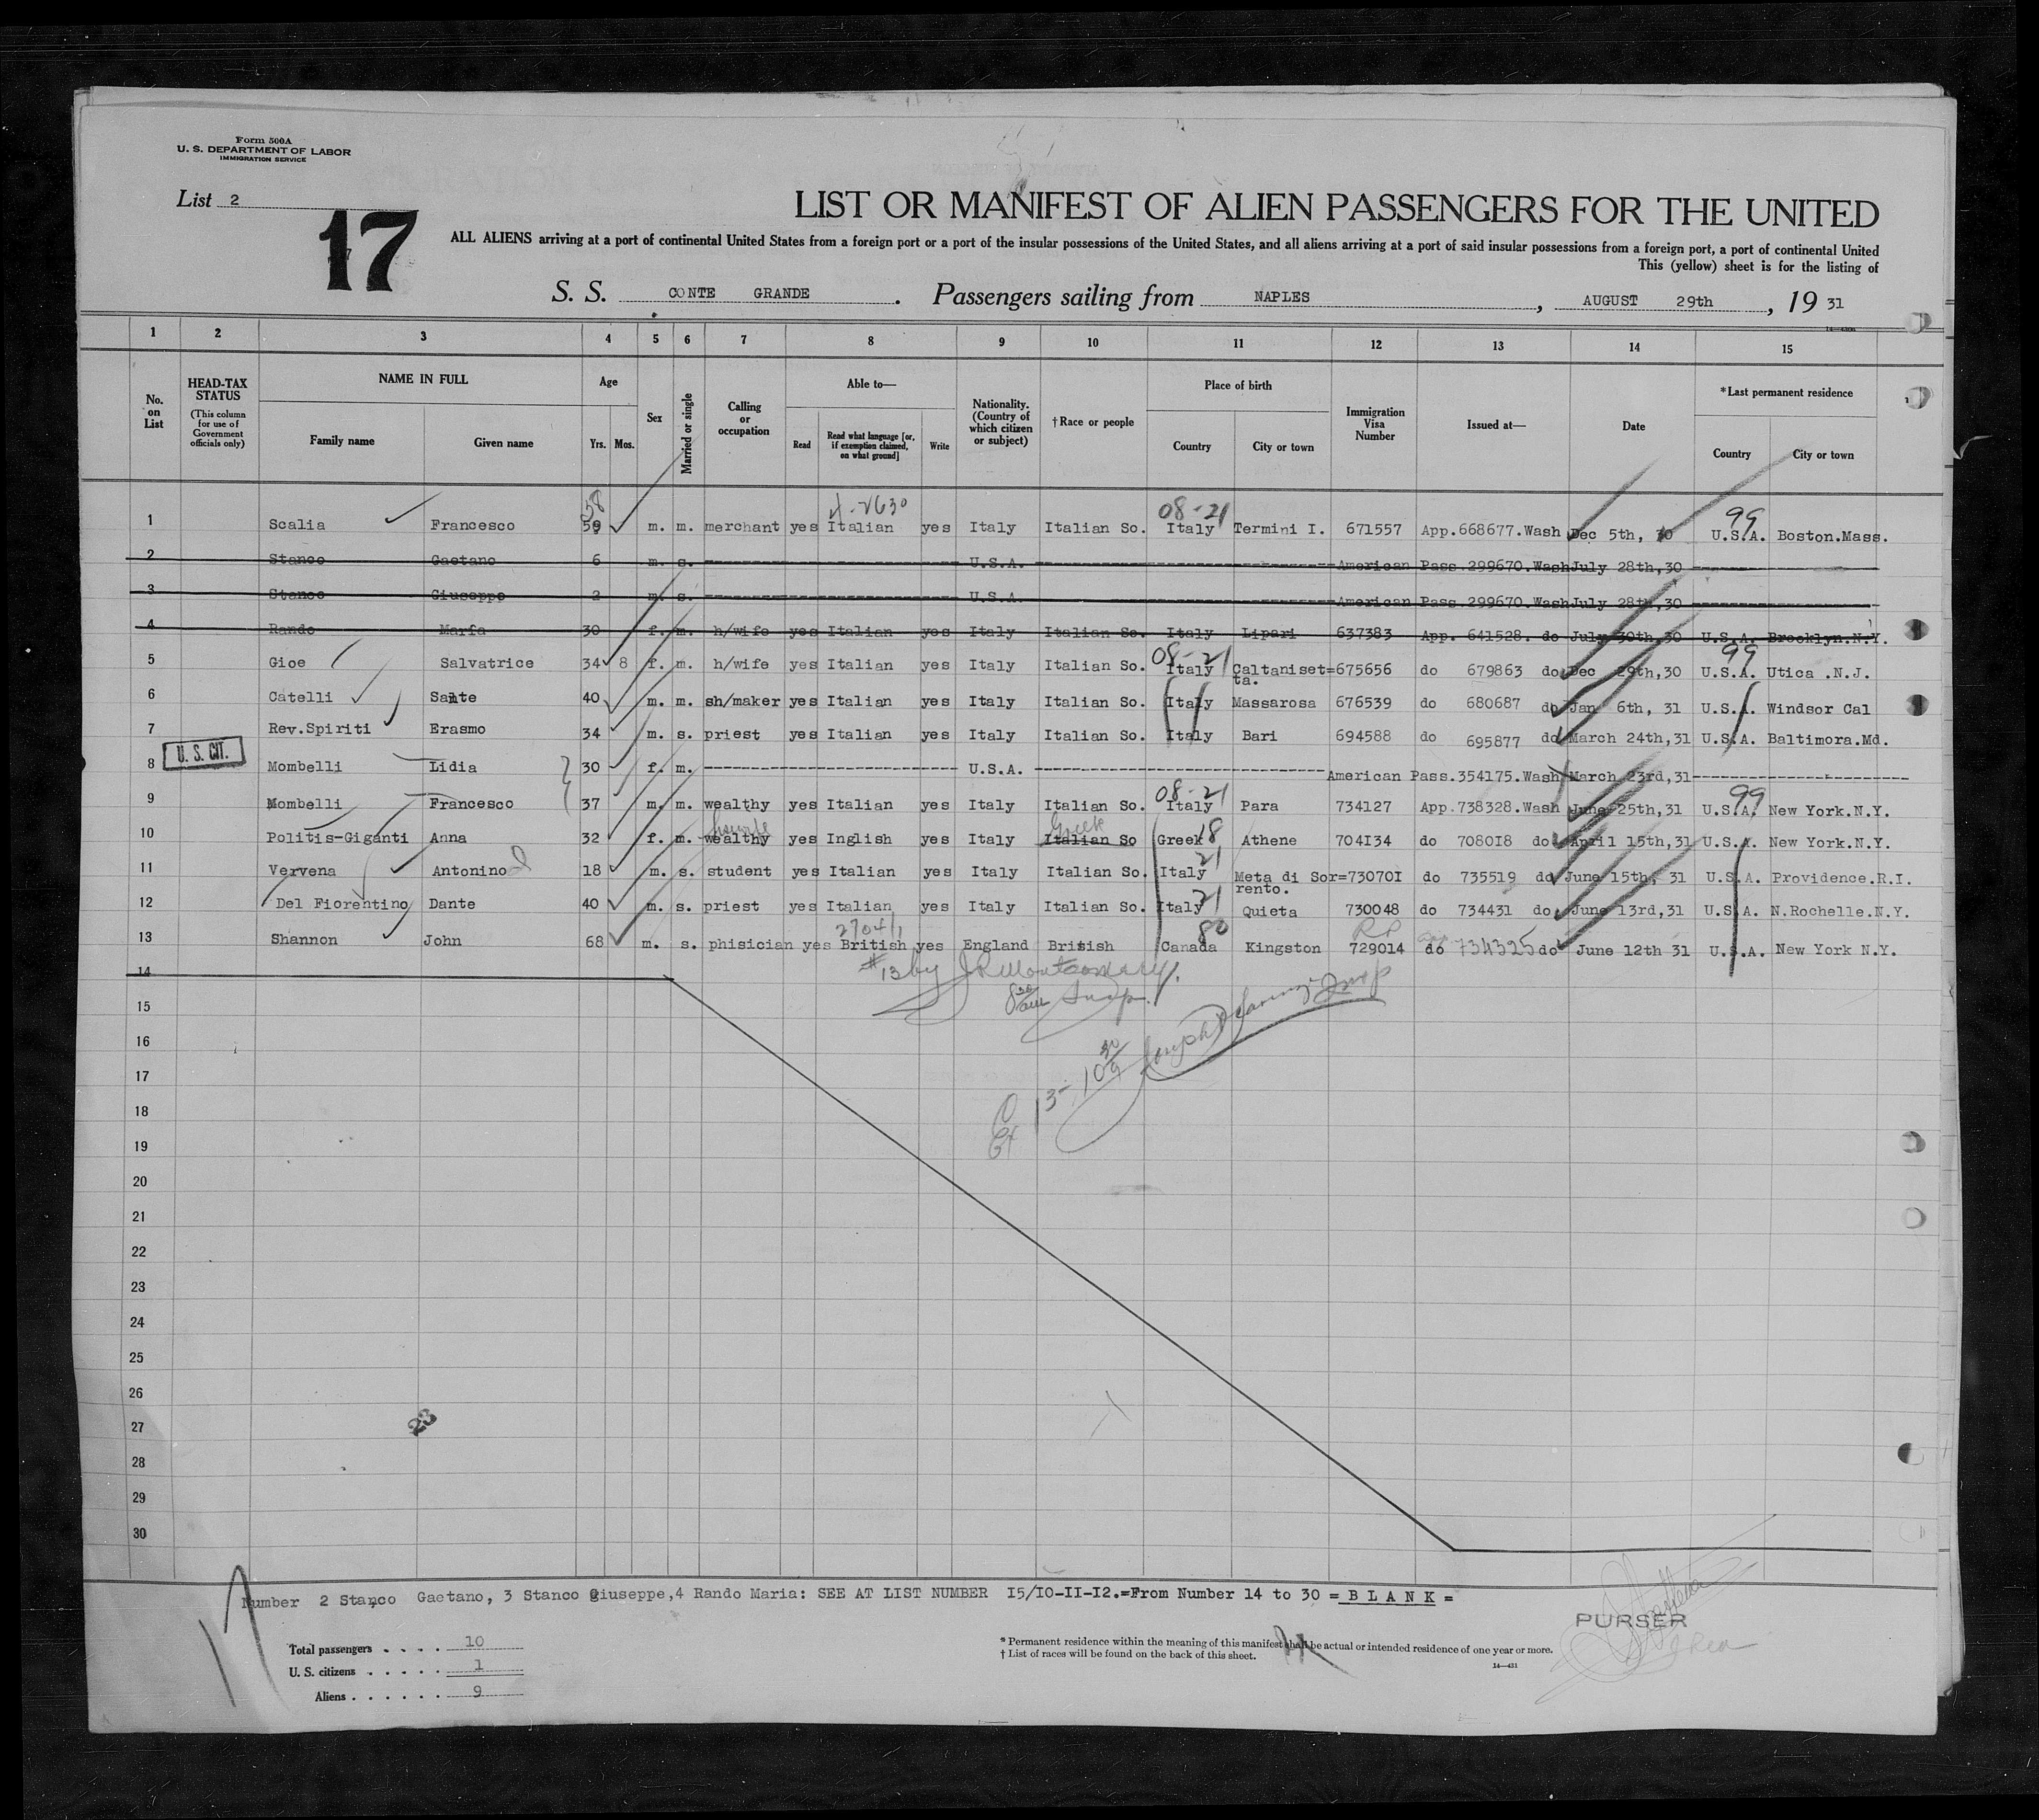 Form 500A
U. S. DEPARTMENT OF LABOR
IMMIGRATION SERVICE
List 2
17
LIST OR MANIFEST OF ALIEN PASSENGERS FOR THE UNITED
ALL ALIENS arriving at a port of continental United States from a foreign port or a port of the insular possessions of the United States, and all aliens arriving at a port of said insular possessions from a foreign port, a port of continental United
This (yellow) sheet is for the listing of
S. S. CONTE GRANDE. Passengers sailing from NAPLES, AUGUST 29th, 19 31
1 2 3 4 5 6 7 8 9 10 11 12 13 14 15
No. on List
HEAD-TAX STATUS
(This column for use of Government officials only)
NAME IN FULL
Family name Given name
Age
Yrs. Mos.
Sex
Married or single
Calling or occupation
Able to—
Read Read what language [or, if exemption claimed, on what ground] Write
Nationality. (Country of which citizen or subject)
†Race or people
Place of birth
Country City or town
Immigration Visa Number
Issued at—
Date
*Last permanent residence
Country City or town
58 08-21 99
1 Scalia Francesco 59 m. m. merchant yes Italian yes Italy Italian So. Italy Termini I. 671557 App.668677.Wash Dec 5th, 30 U.S.A. Boston.Mass.
2 Stanco Gaetano 6 m. s. U.S.A. American Pass.299670.Wash July 28th,30
3 Stanco Giuseppe 2 m. s. U.S.A. American Pass.299670.Wash July 28th,30
4 Rando Maria 30 f. m. h/wife yes Italian yes Italy Italian So. Italy Lipari 637383 App. 641528. do July 30th,30 U.S.A. Brooklyn.N.Y.
08-21 99
5 Gioe Salvatrice 34 8 f. m. h/wife yes Italian yes Italy Italian So. Italy Caltaniset=ta. 675656 do 679863 do Dec 29th,30 U.S.A. Utica .N.J.
6 Catelli Sante 40 m. m. sh/maker yes Italian yes Italy Italian So. Italy Massarosa 676539 do 680687 do Jan 6th, 31 U.S.A. Windsor Cal
7 Rev.Spiriti Erasmo 34 m. s. priest yes Italian yes Italy Italian So. Italy Bari 694588 do 695877 do March 24th,31 U.S.A. Baltimora.Md.
U. S. CIT.
8 Mombelli Lidia 30 f. m. U.S.A. American Pass.354175.Wash March 23rd,31
08-21 99
9 Mombelli Francesco 37 m. m. wealthy yes Italian yes Italy Italian So. Italy Para 734127 App.738328.Wash June 25th,31 U.S.A. New York.N.Y.
Greek
10 Politis-Giganti Anna 32 f. m. wealthy yes Inglish yes Italy Italian So Greek 18 Athene 704I34 do 7080I8 do April 15th,31 U.S.A. New York.N.Y.
21
11 Vervena Antonino 18 m. s. student yes Italian yes Italy Italian So. Italy Meta di Sor=rento. 73070I do 735519 do June 15th, 31 U.S.A. Providence.R.I.
21
12 Del Fiorentino Dante 40 m. s. priest yes Italian yes Italy Italian So. Italy Quieta 730048 do 734431 do June 13rd,31 U.S.A. N.Rochelle.N.Y.
80
13 Shannon John 68 m. s. phisician yes British yes England British Canada Kingston 729014 do 734325 do June 12th 31 U.S.A. New York N.Y.
14
#13 by J R Montgomery
15
16
17
18
19
20
21
22
23
24
25
26
27
23
28
29
30
Number 2 Stanco Gaetano, 3 Stanco Giuseppe,4 Rando Maria: SEE AT LIST NUMBER I5/I0-II-I2.=From Number 14 to 30 = B L A N K =
PURSER
Total passengers . . . . 10
U. S. citizens . . . . . 1
Aliens . . . . . . 9
* Permanent residence within the meaning of this manifest shall be actual or intended residence of one year or more.
† List of races will be found on the back of this sheet.
14—431